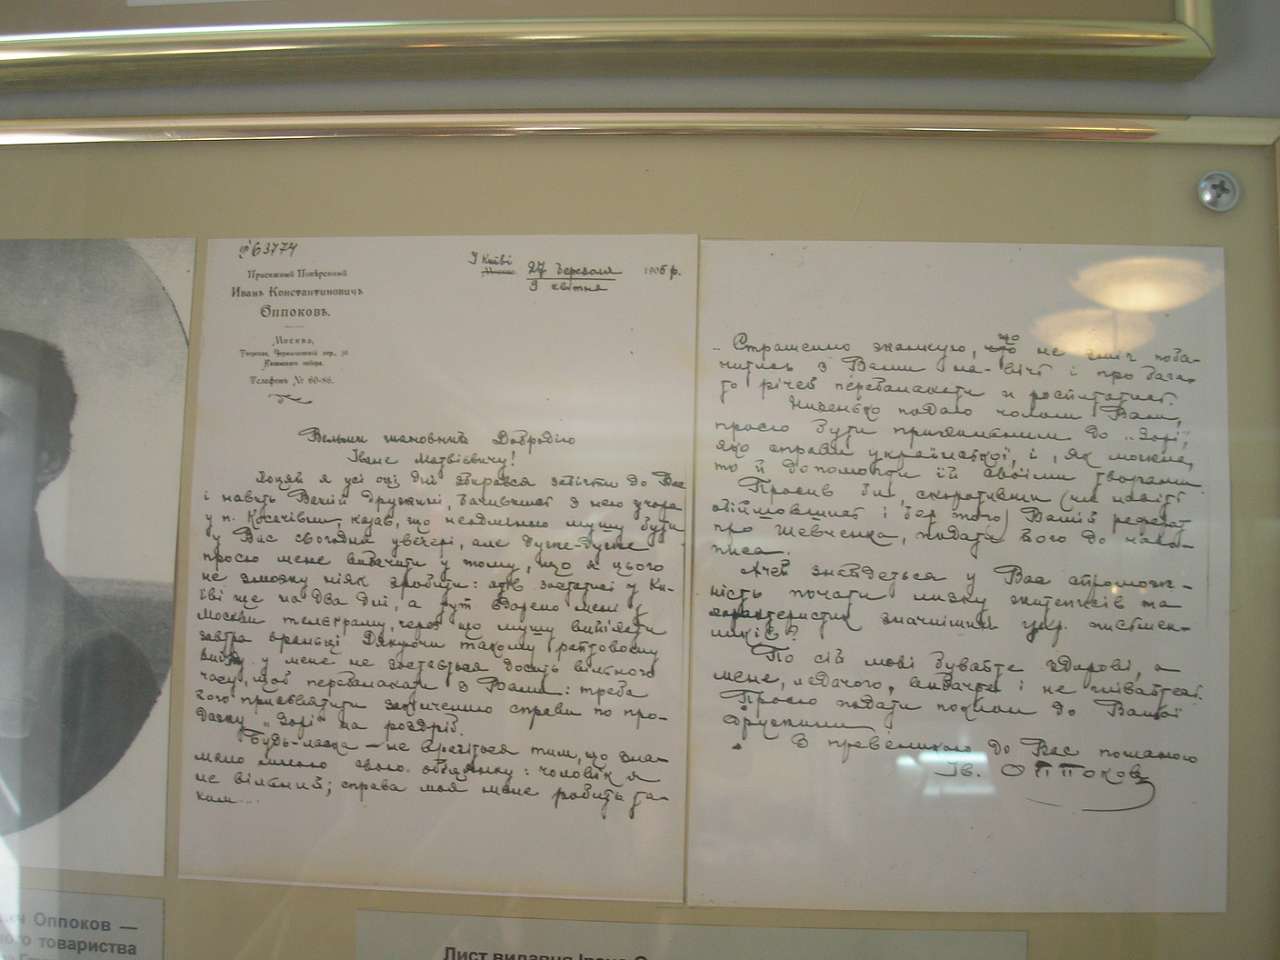 № 63774
Присяжный Повѣренный
Иванъ Константиновичъ
Оппоковъ.
Москва,
Телефонъ № 60-86.
У Київі
27 березоля 1906 р.
9 квітня
Вельми шановний Добродію
Іване Матвієвичу!
Хоцяй я усі оці дні збірався забігти до Вас
і навіть Вашій Дружині, бачившися з нею учора
у п. Косачівни, казав, що неодмінно мушу бути
у Вас сьогодня увечері, але дуже-дуже
прошу мене вибачити у тому, що я цього
не зможу ніяк зробити: мав зостатись у Ки-
їві ще на два дні, а тут вдарено мені з
Москви телеграму, через що мушу виїхати
завтра вранці. Дякуючи такому раптовому
виїзду у мене не зостається досить вільного
часу, щоб перебалакати з Вами: треба
його присвятити закінченню справи по про-
дажу „Зорі“ на роздріб.
Будь-ласка — не вразіться тим, що зла-
мано мною свою обіцянку: чоловік я
не вільний; справа моя мене робить та-
ким...
Страшенно жалкую, що не зміг поба-
читись з Вами на-вічі і про бага-
то річей перебалакати й розпитатись.
Низенько подаю чолом Вам,
прошу бути прихильним до „Зорі“,
яко справи української, і, як можна,
то й допомогти їй своїми творами
Просив би, скоротивши (чи навіть
обійшовшись і без того) Вашів реферат
про Шевченка, подати його до часо-
писа.
Ачей знайдеться у Вас спромож-
ність почати низку життєписів та
характеристик значніших укр. письмен-
ників?
По сій мові бувайте здорові, а
мене, ледачого, вибачте і не гнівайтесь.
Прошу подати поклон до Вашої
Дружини
З превеликою до Вас пошаною
Ів. Оппоков
Оппоков —
товариства
Лист видавця Івана